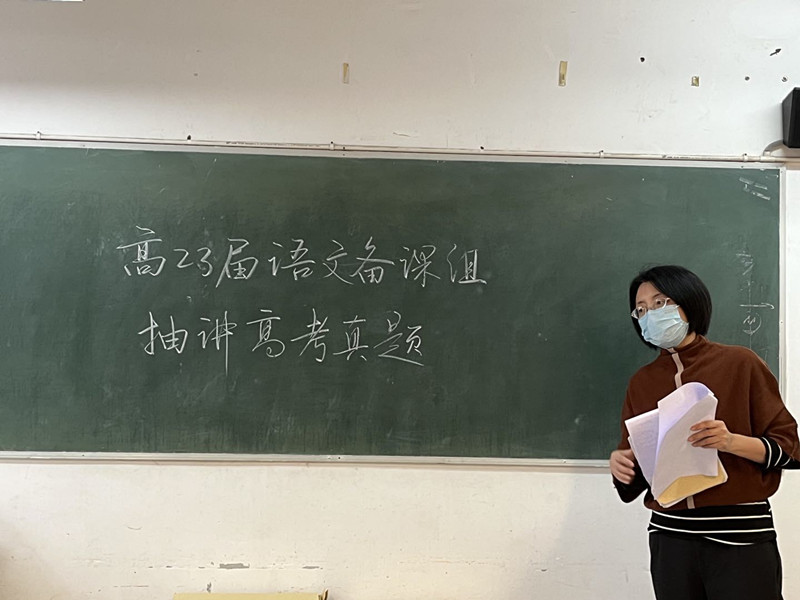 高23届语文备课组
抽讲高考真题